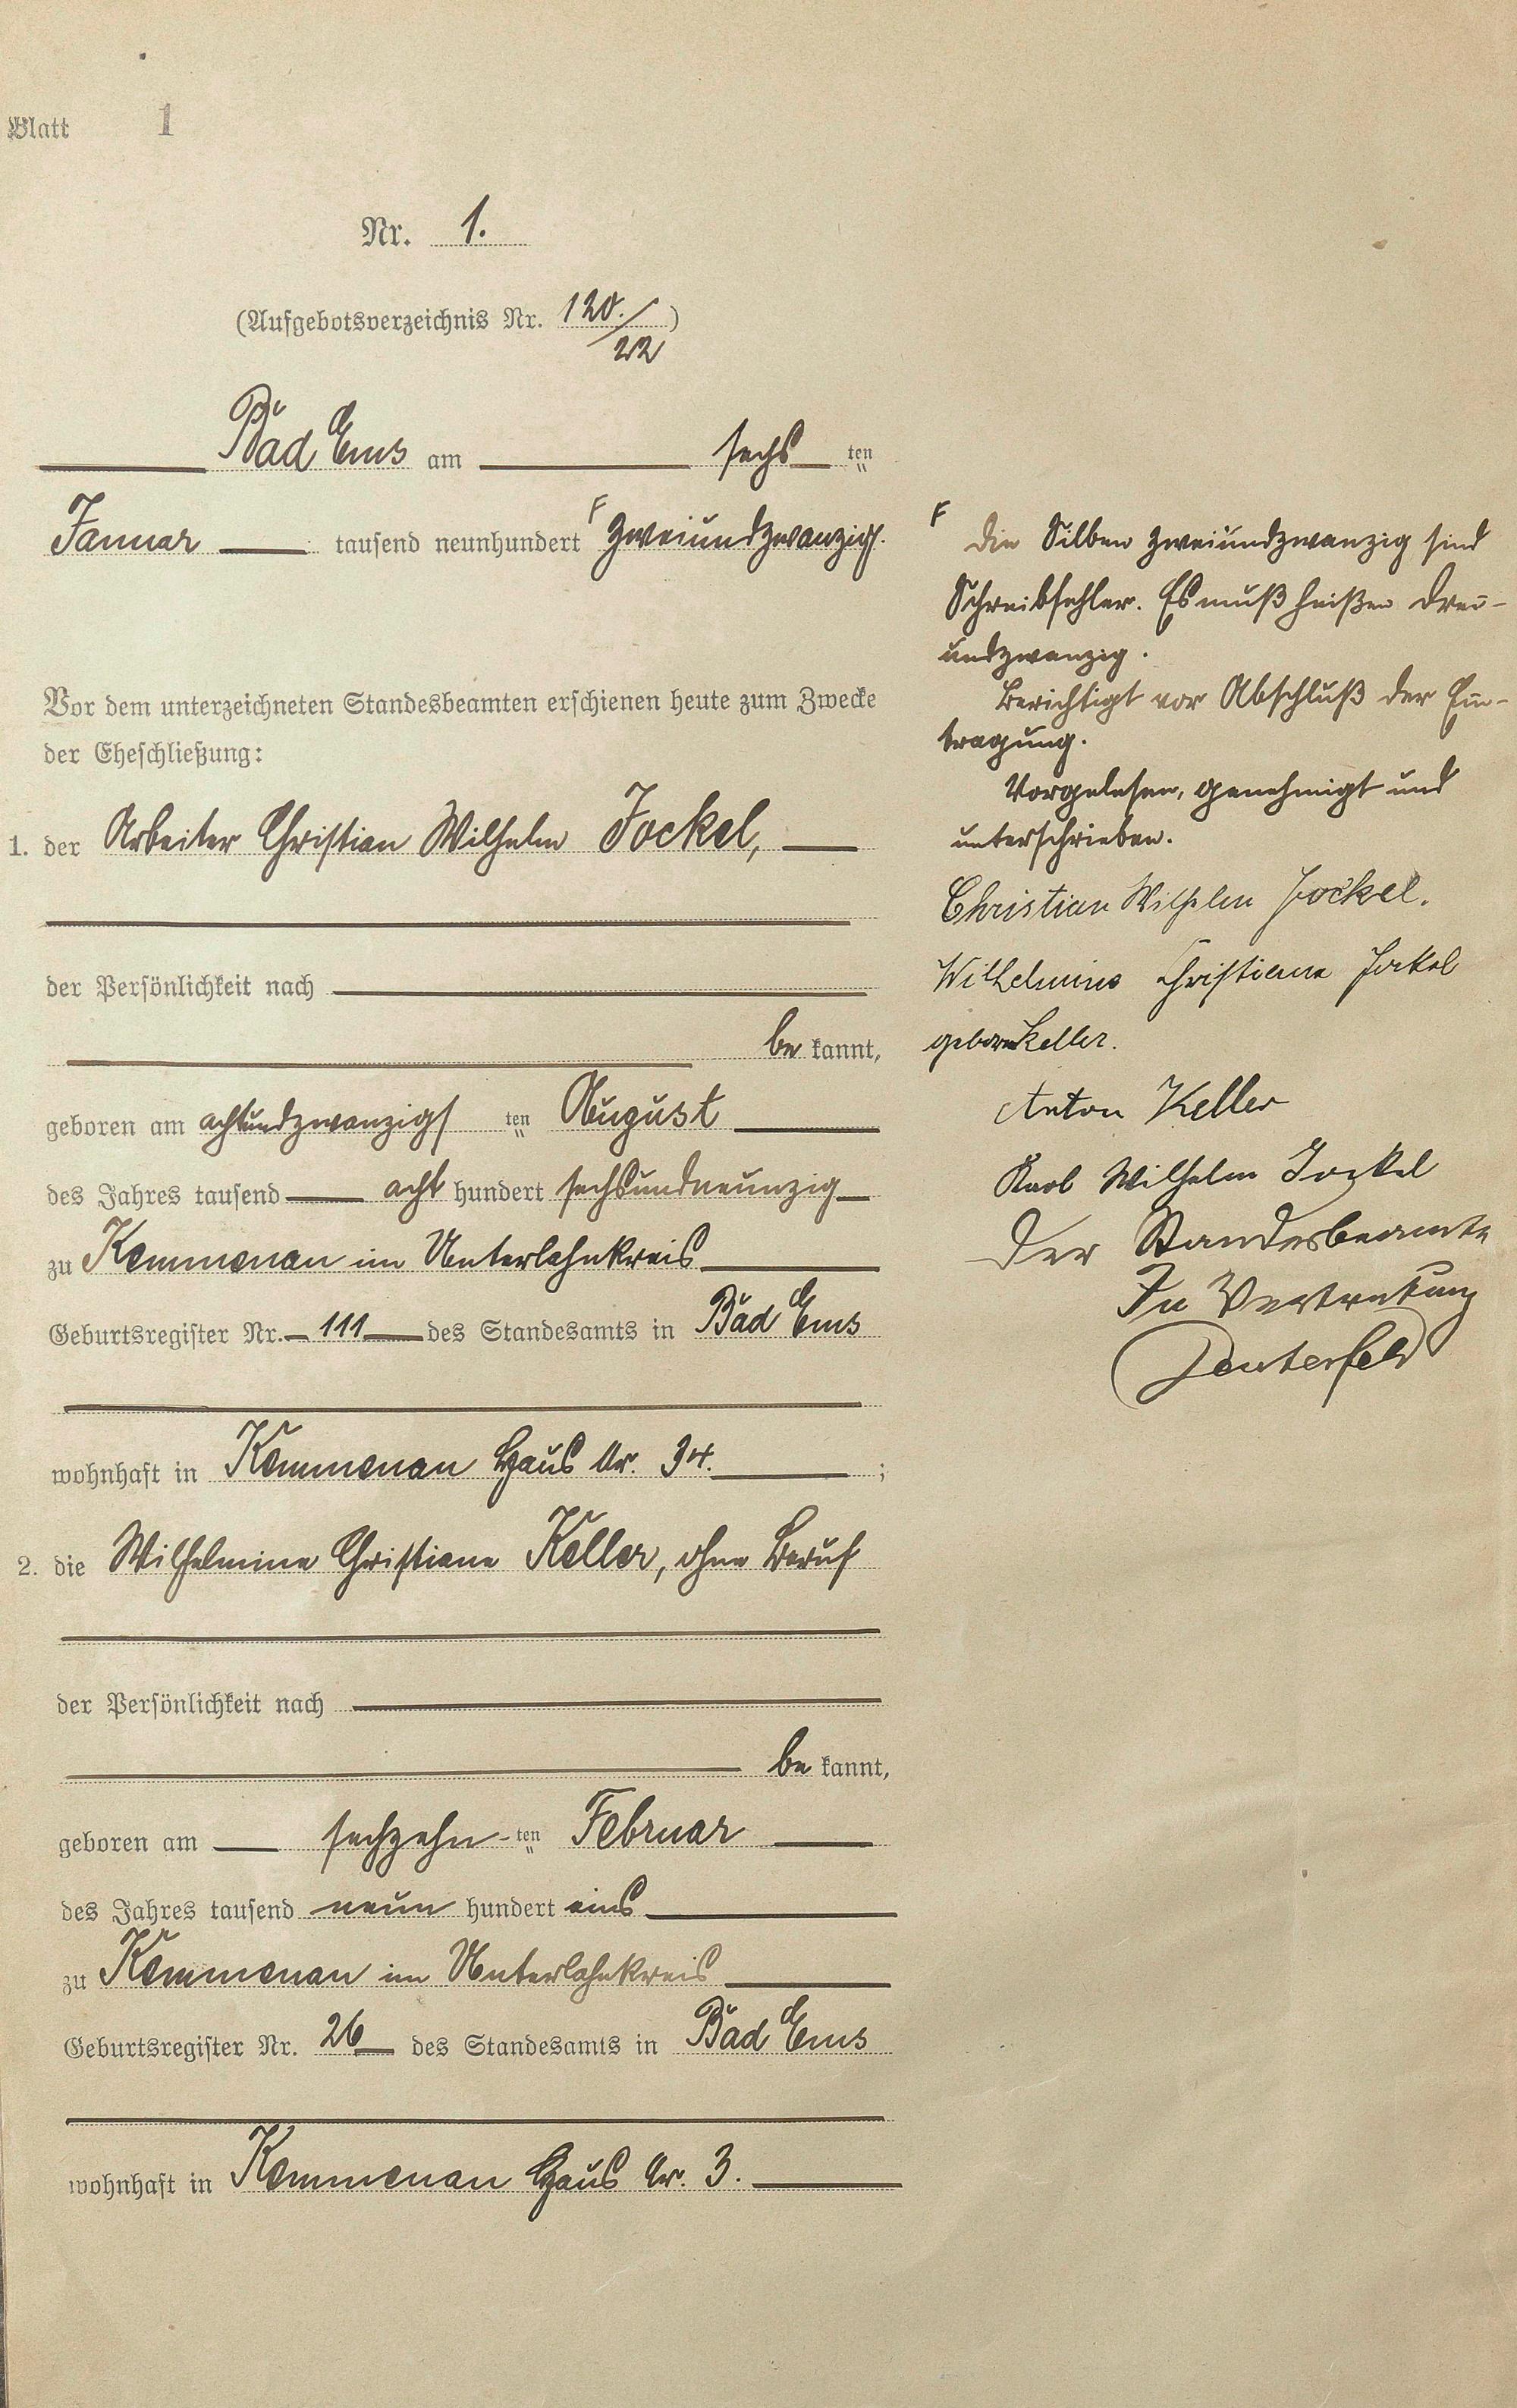 Blatt 1
Nr. 1.
(Aufgebotsverzeichnis Nr. 120./22)
Bad Ems am sechs ten
Januar tausend neunhundert F zweiundzwanzig.
Vor dem unterzeichneten Standesbeamten erschienen heute zum Zwecke
der Eheschließung:
1. der Arbeiter Christian Wilhelm Jockel,
der Persönlichkeit nach
be kannt,
geboren am achtundzwanzigs ten August
des Jahres tausend acht hundert sechsundneunzig
zu Kemmenau im Unterlahnkreis
Geburtsregister Nr. 111 des Standesamts in Bad Ems
wohnhaft in Kemmenau Haus Nr. 34. ;
2. die Wilhelmine Christiane Keller, ohne Beruf
der Persönlichkeit nach
be kannt,
geboren am sechzehn ten Februar
des Jahres tausend neun hundert eins
zu Kemmenau im Unterlahnkreis
Geburtsregister Nr. 26 des Standesamts in Bad Ems
wohnhaft in Kemmenau Haus Nr. 3.
F Die Silben zweiundzwanzig sind
Schreibfehler. Es muß heißen drei-
undzwanzig.
Berichtigt vor Abschluß der Ein-
tragung.
Vorgelesen, genehmigt und
unterschrieben.
Christian Wilhelm Jockel.
Wilhelmine Christiane Jockel
geborene Keller.
Anton Keller
Karl Wilhelm Jockel
Der Standesbeamte
In Vertretung